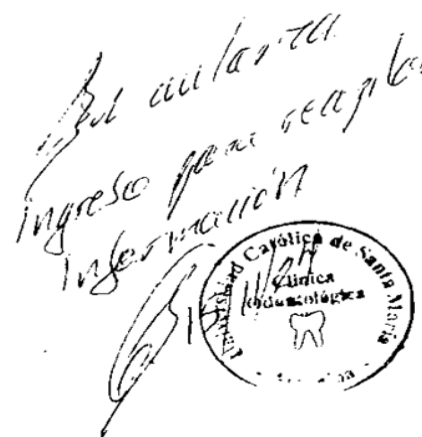 Se autoriza
ingreso para recoplar
información
Universidad Católica de Santa María
Clínica
Odontológica